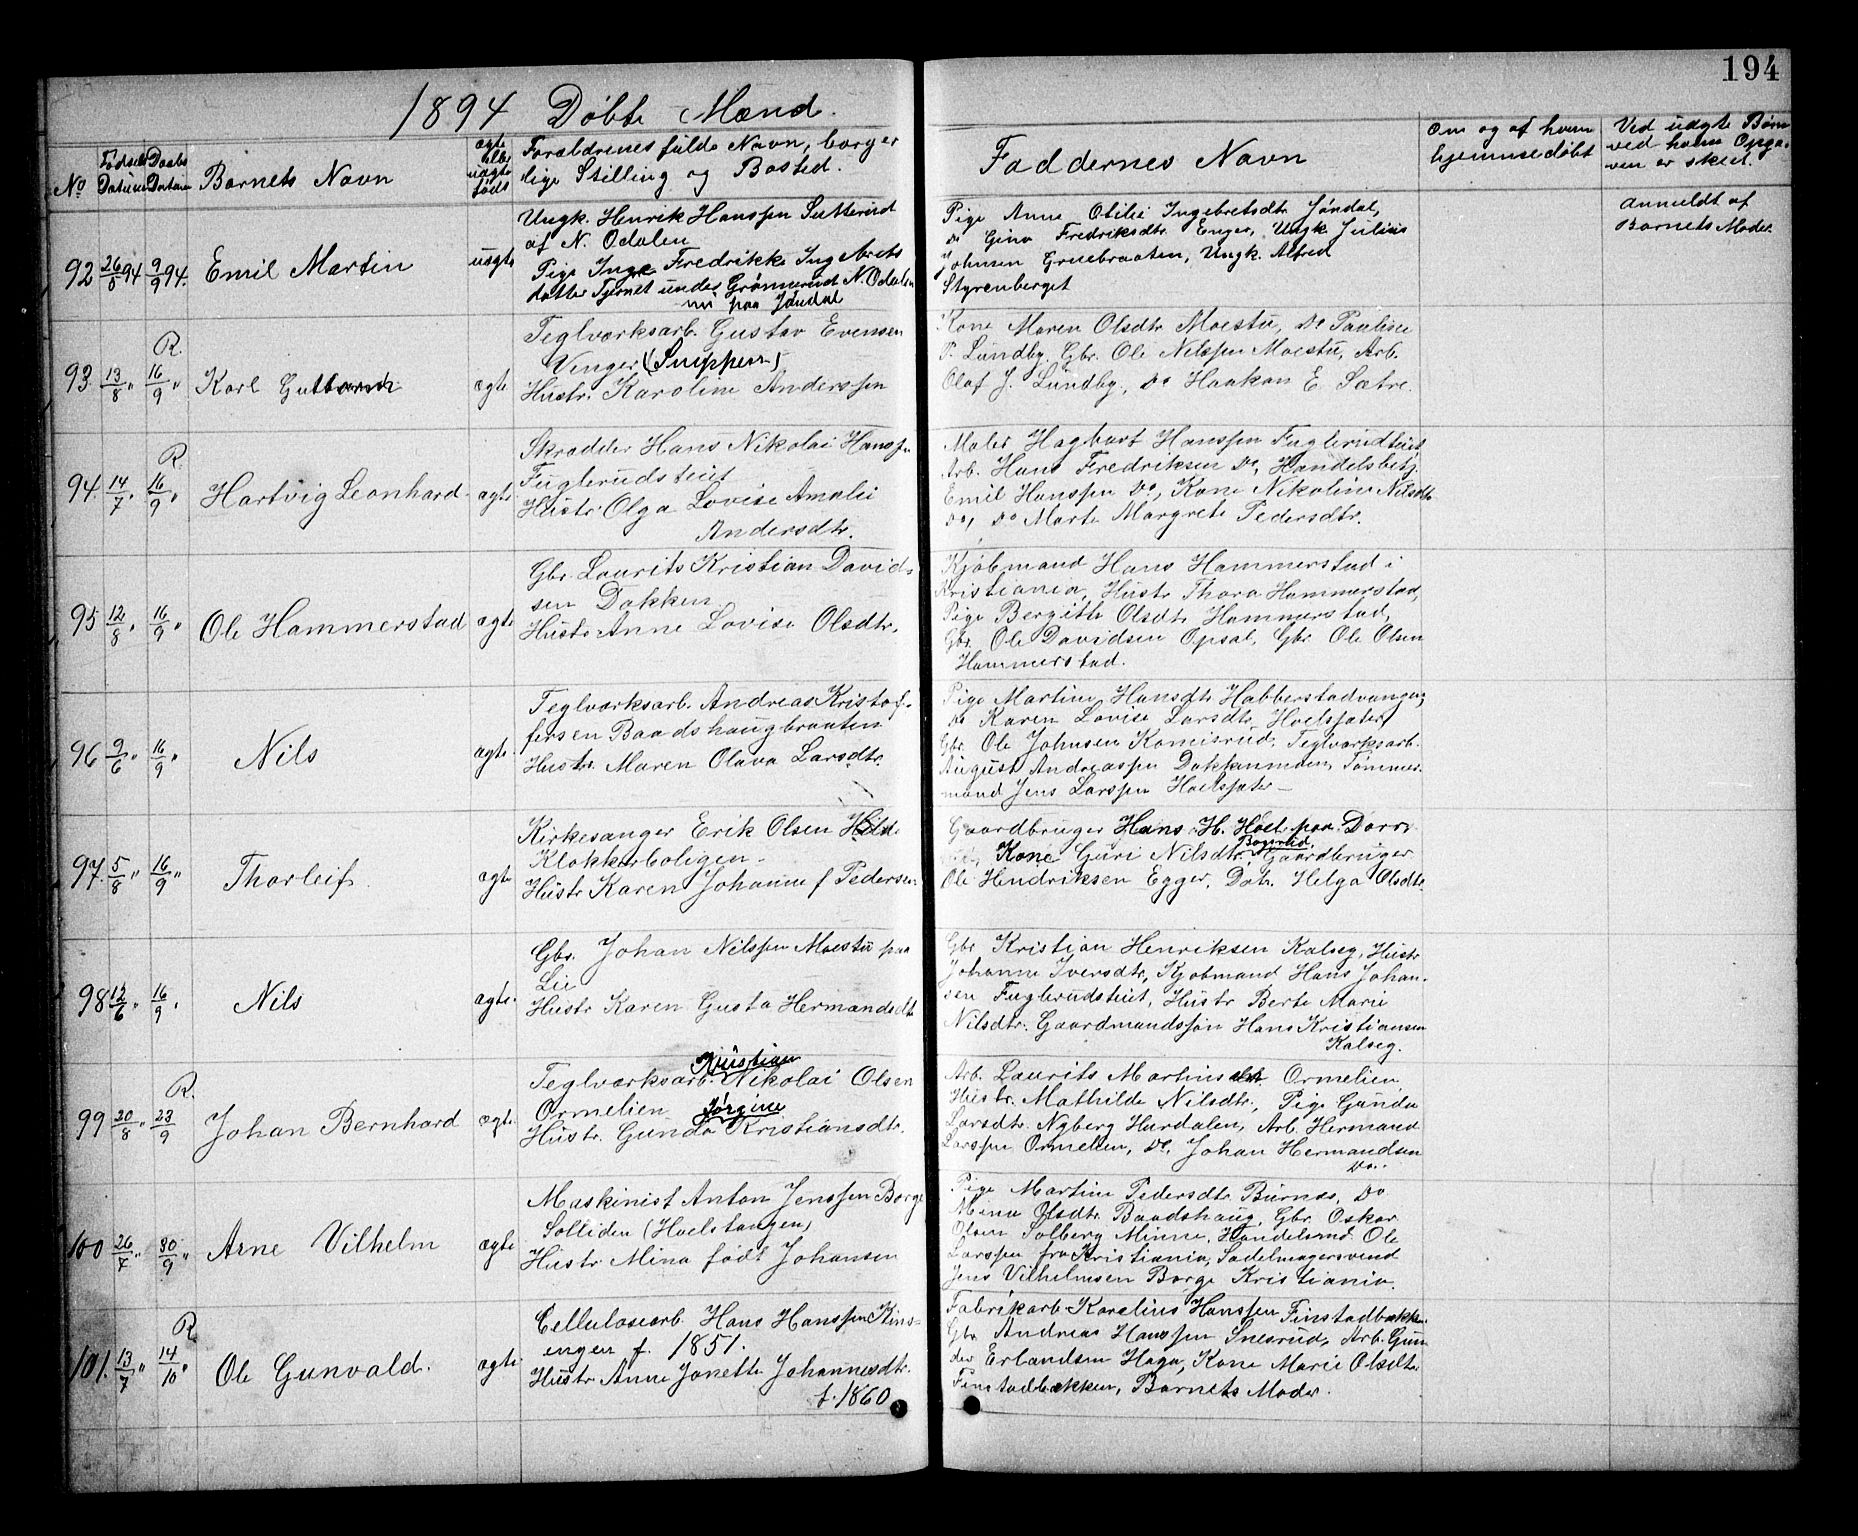 194
1894 Døbte Mænd.
No
Fødsels Datum
Daabs Datum
Barnets Navn
ægte eller uægte føds
Forældrenes fulde Navn, borger
lige Stilling og Bosted.
Faddernes Navn
Om og af hvem
hjemmedøbt
Ved uægte Børn
ved hvem Opga-
ven er skeet.
92 26/8 94 9/9 94. Emil Martin
uægte
Ungk. Henrik Hanssen Sutterud
af N. Odalen
Pige Inga Fredrikke Ingebrets
datter Tjernet under Grønnerud N. Odalen
nu paa Jøndal
Pige Anne Otilie Ingebretsdtr Jøndal,
Do Gina Fredriksdtr. Enger, Ungk Julius
Johnsen Gruebraaten, Ungk. Alfred
Styrenberget
Anmeldt af
Barnets Moder.
R.
93. 13/8 " 16/9 " Karl
ægte
Teglværksarb. Gustav Evensen
Vinger (Snippen)
Hustr. Karoline Anderssen
Kone Maren Olsdtr Moestu, Do Pauline
P. Lundby, Gbr. Ole Nilssen Moestu, Arb.
Olaf J. Lundby, Do Haakon E. Sætre.
R.
94. 14/7 " 16/9 " Hartvig Leonhard
ægte
Skrædder Hans Nikolai Hanssen
Fuglerudsteiet
Hustr Olga Lovise Amalie
Andersdtr.
Maler Hagbart Hanssen Fuglerudteiet
Arb. Hans Fredriksen Do, Handelsbetj.
Emil Hanssen Do, Kone Nikoline Nilsdtr
Do, Do Marte Margrete Pedersdtr.
95 12/8 " 16/9 " Ole Hammerstad
ægte
Gbr. Laurits Kristian David-
sen Dakken
Hustr Anne Lovise Olsdtr.
Kjøbmand Hans Hammerstad i
Kristiania, Hustr Thora Hammerstad,
Pige Bergitte Olsdtr Hammerstad,
Gbr. Ole Davidsen Opsal, Gbr Ole Olsen
Hammerstad.
96 9/6 " 16/9 " Nils
ægte
Teglværksarb. Andreas Kristof-
fersen Baadshaugbraaten
Hustr. Maren Olava Larsdtr.
Pige Martine Hansdtr Habberstadvangen,
Do Karen Lovise Larsdtr. Hoelsæter
Gbr. Ole Johnsen Komisrud, Teglværksarb.
August Andreassen Dakkenmoen, Tømmer-
mand Jens Larssen Hoelsæter
97. 5/8 " 16/9 " Thorleif
ægte
Kirkesanger Erik Olsen
Klokkerboligen
Hustr Karen Johanne f Pedersen
Gaardbruger Hans H. Hoel paa
Kone Guri Nilsdtr. Bogerud, Gaardbruger
Ole Hendriksen Egger, Dotr. Helga Olsdtr.
98 12/6 " 16/9 " Nils
ægte
Gbr. Johan Nilssen Moestu paa
Lie
Hustr Karen Gusta Hermandsdtr
Gbr Kristian Henriksen Kalseg, Hustr
Johanne Iversdtr, Kjøbmand Hans Johan-
sen Fuglerudsteiet, Hustr Berte Marie
Nilsdtr. Gaardmandssøn Hans Kristiansen
Kalseg.
R.
99 20/8 " 23/9 Johan Bernhard
ægte
Kristian
Teglværksarb. Nikolai Olsen
Ormelien Jørgine
Hustr. Gunda Kristiansdtr.
Arb. Laurits Martinus Ormelien,
Hustr. Mathilde Nilsdtr., Pige Gunda
Larsdtr. Nyberg Hurdalen, Arb. Hermand
Larssen Ormelien, Do, Johan Hermandsen
Do.
100 26/7 " 30/9 " Arne Vilhelm
ægte
Maskinist Anton Jenssen Borge
Solliden (Hoelstangen)
Hustr Mina født Johansen
Pige Martine Pedersdtr. Burnæs, Do
Mina Olsdtr. Baadshaug, Gbr. Oskar
Olsen Solberg Minne, Handelsmd. Ole
Larssen fra Kristiania, Sadelmagersvend
Jens Vilhelmsen Borge Kristiania.
R.
101. 13/7 " 14/10 " Ole Gunvald.
ægte
Cellulosearb. Hans Hanssen
engen f. 1851.
Hustr Anne Janette Johannesdtr.
f. 1860
Fabrikarb Karelius Hanssen Finstadbækken
Gbr Andreas Hanssen Snesrud, Arb. Gun
der Erlandsen Haga, Kone Marie Olsdtr.
Finstadbækken, Barnets Moder.